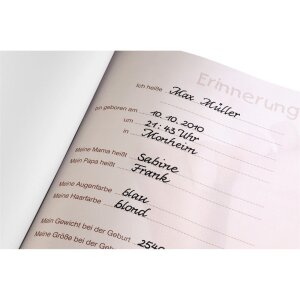 Erinnerung
Ich heiße Max Müller
bin geboren am 10.10.2010
um 21:43 Uhr
in Monheim
Meine Mama heißt Sabine
Mein Papa heißt Frank
Meine Augenfarbe blau
Meine Haarfarbe blond
Mein Gewicht bei der Geburt 2540
Meine Größe bei der Geburt